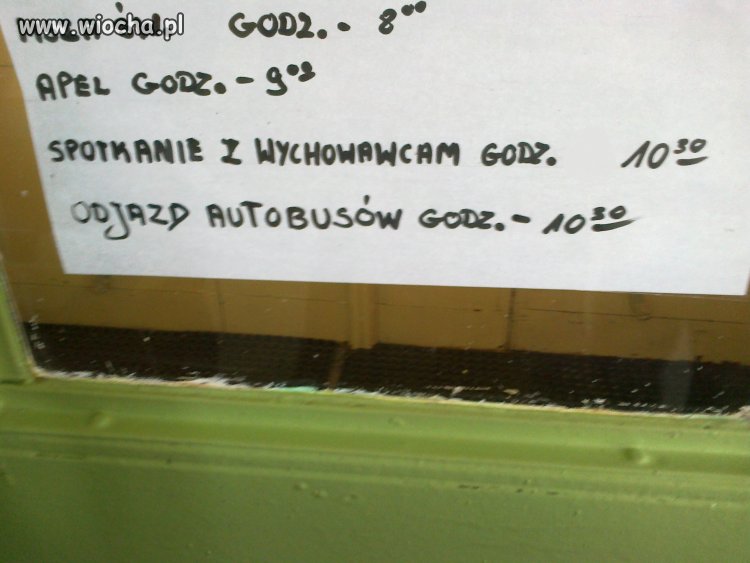 www.wiocha.pl
GODZ. - 8⁰⁰
APEL GODZ. - 9⁰⁰
SPOTKANIE Z WYCHOWAWCAM GODZ. 10³⁰
ODJAZD AUTOBUSÓW GODZ. - 10³⁰